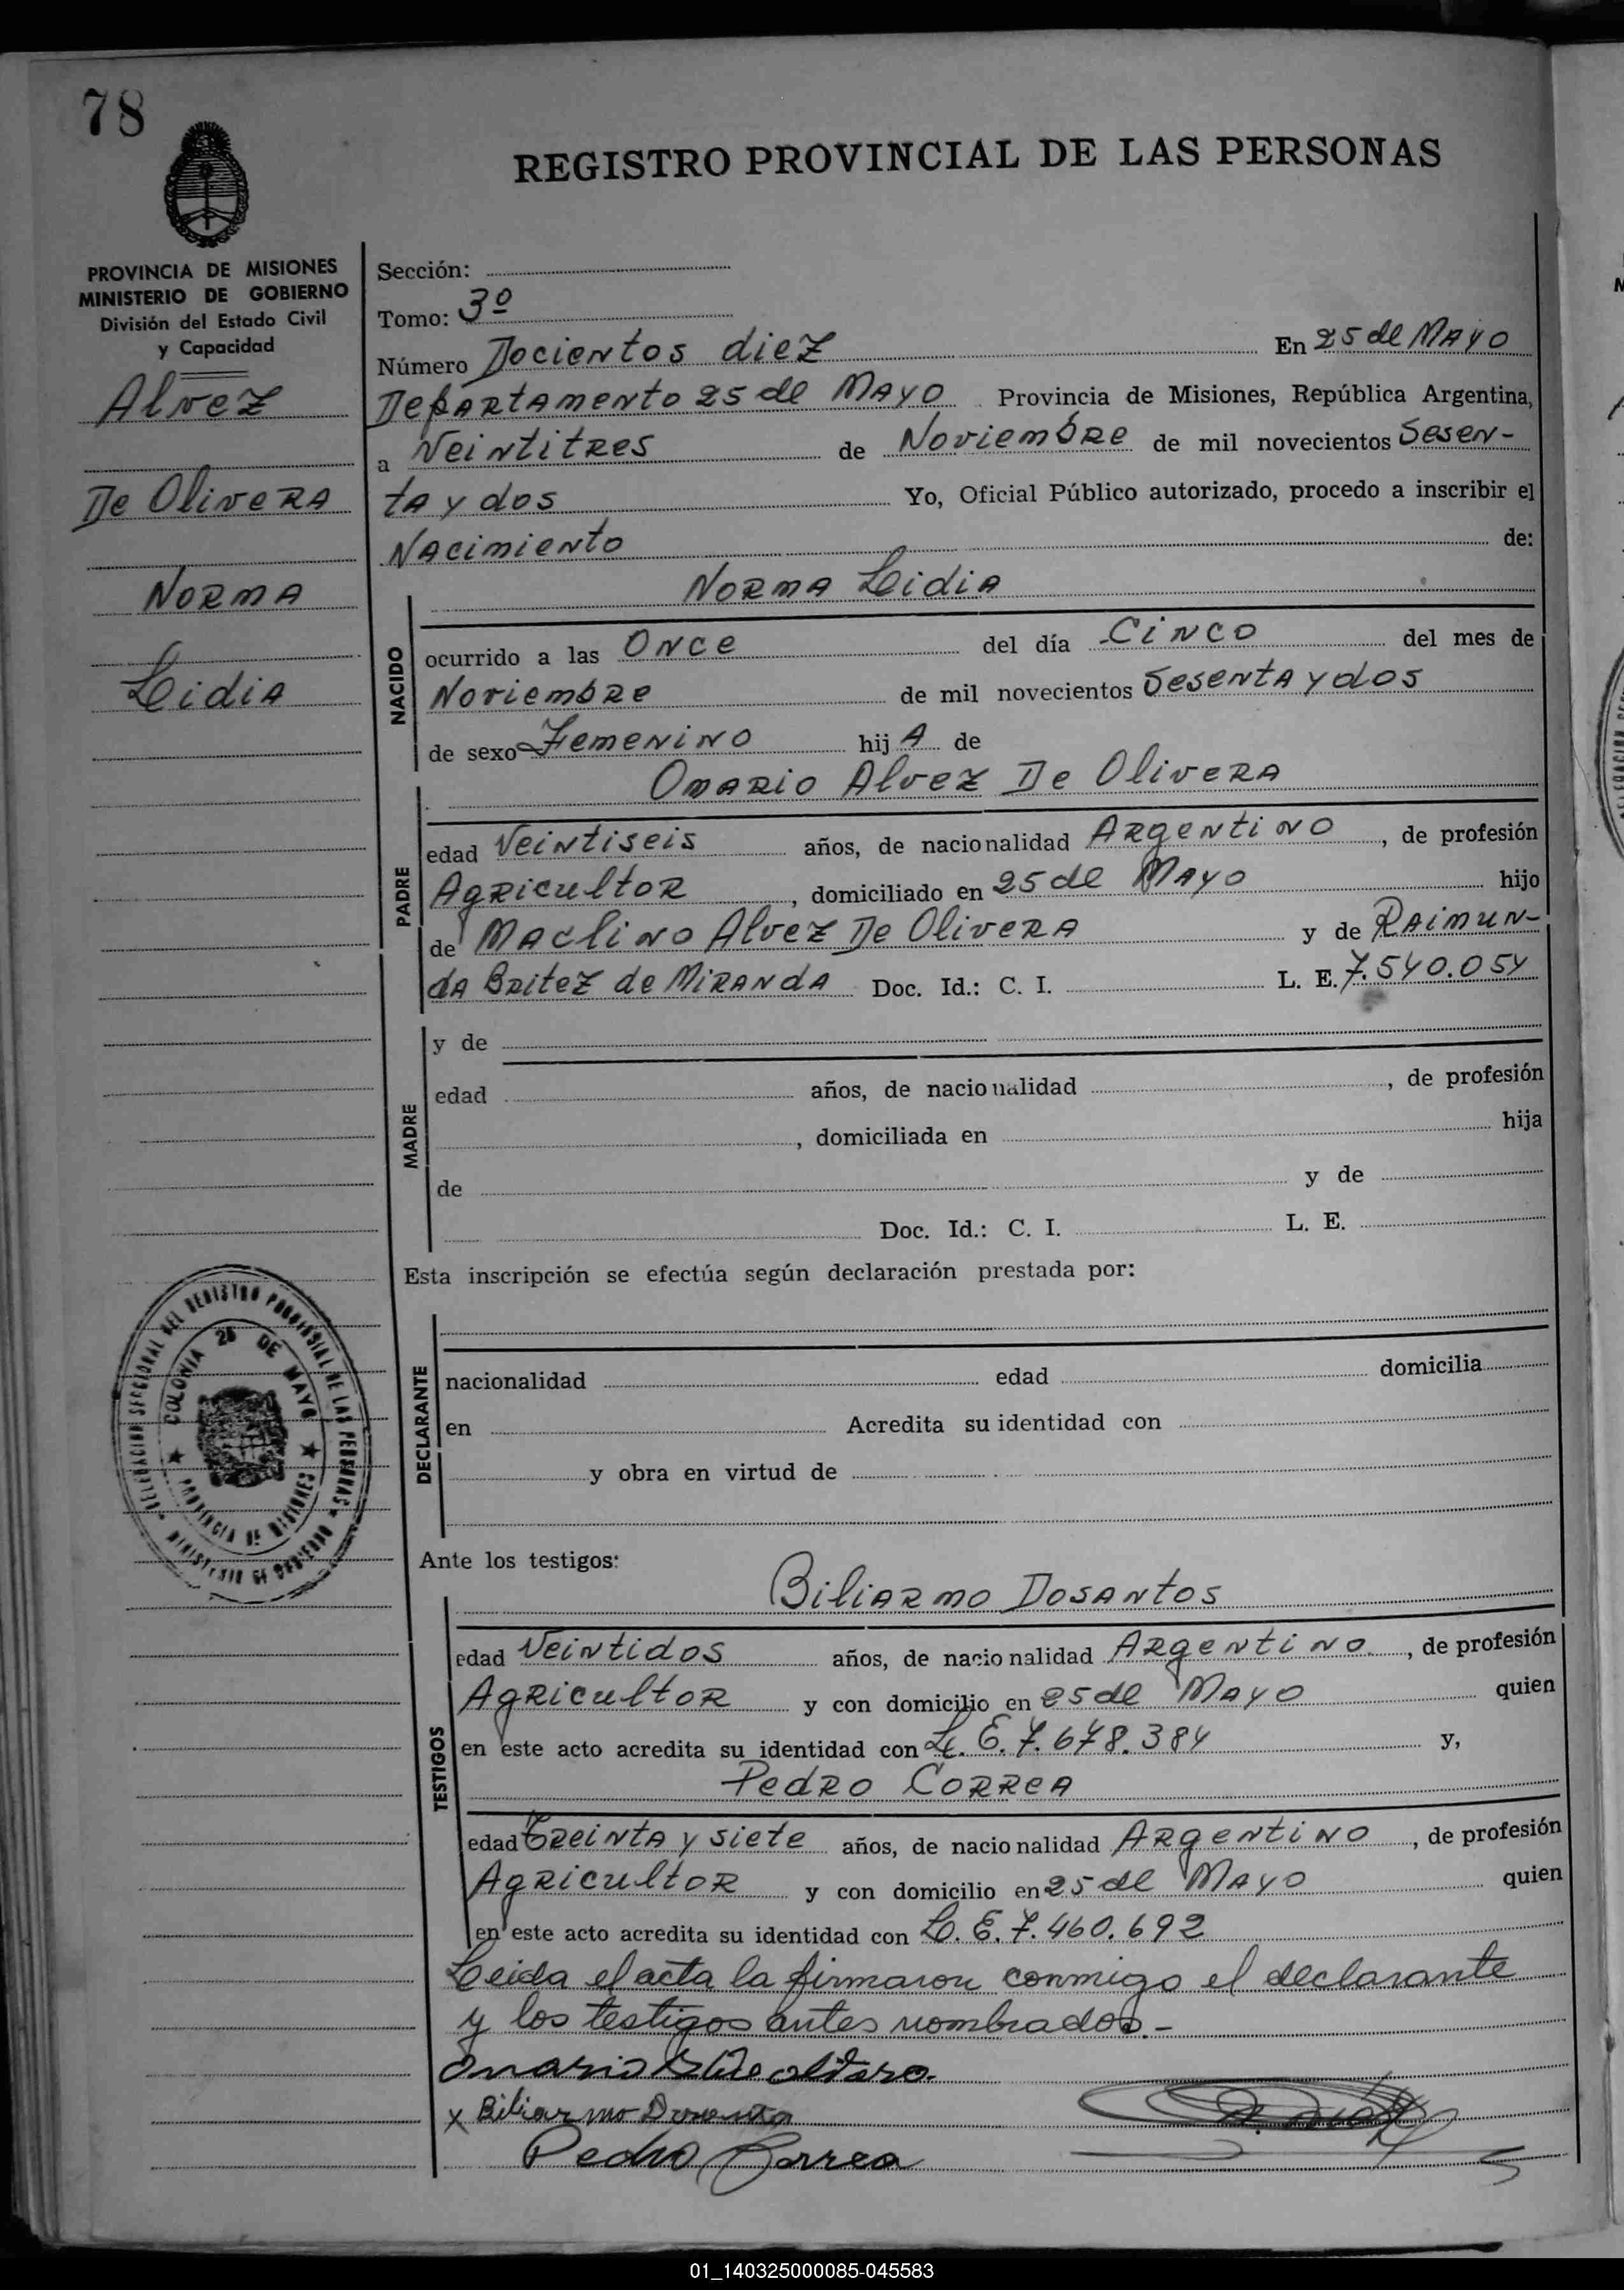 78
REGISTRO PROVINCIAL DE LAS PERSONAS
PROVINCIA DE MISIONES
MINISTERIO DE GOBIERNO
División del Estado Civil
y Capacidad
Alvez
De Olivera
Norma
Lidia
Sección:
Tomo: 3º
Número Docientos diez En 25 de Mayo
Departamento 25 de Mayo Provincia de Misiones, República Argentina,
a Veintitres de Noviembre de mil novecientos Sesen-
ta y dos Yo, Oficial Público autorizado, procedo a inscribir el
Nacimiento de:
Norma Lidia
NACIDO
ocurrido a las Once del día Cinco del mes de
Noviembre de mil novecientos Sesenta y dos
de sexo Femenino hij A de
Omario Alvez De Olivera
PADRE
edad Veintiseis años, de nacionalidad Argentino, de profesión
Agricultor, domiciliado en 25 de Mayo hijo
de Maclino Alvez De Olivera y de Raimun-
da Britez de Miranda Doc. Id.: C. I. L. E. 7.540.054
MADRE
y de
edad años, de nacionalidad , de profesión
, domiciliada en hija
de y de
Doc. Id.: C. I. L. E.
Esta inscripción se efectúa según declaración prestada por:
DECLARANTE
nacionalidad edad domicilia
en Acredita su identidad con
y obra en virtud de
DELEGACION SECCIONAL DEL REGISTRO PROVINCIAL DE LAS PERSONAS
MINISTERIO DE GOBIERNO
COLONIA 25 DE MAYO
PROVINCIA DE MISIONES
Ante los testigos:
Biliarmo Dosantos
TESTIGOS
edad Veintidos años, de nacionalidad Argentino, de profesión
Agricultor y con domicilio en 25 de Mayo quien
en este acto acredita su identidad con L. E. 7.678.384 y,
Pedro Correa
edad Treinta y siete años, de nacionalidad Argentino, de profesión
Agricultor y con domicilio en 25 de Mayo quien
en este acto acredita su identidad con L. E. 7.460.692
Leida el acta la firmaron conmigo el declarante
y los testigos antes nombrados.-
Omario
x Biliarmo
Pedro Correa
01_140325000085-045583